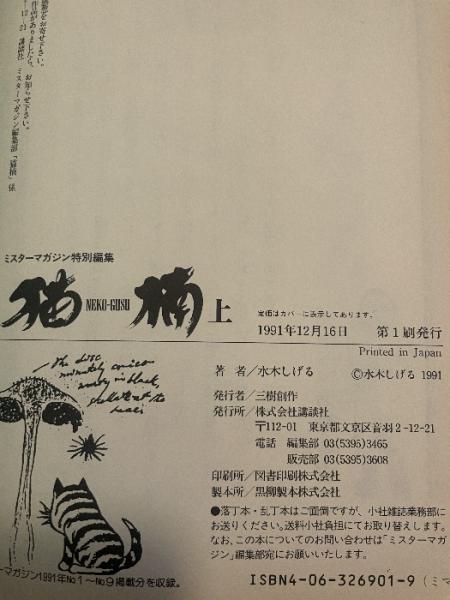 編集部をお寄せ下さい。
作品がありましたら、お知らせ下さい。
2-12-21 講談社 ミスターマガジン編集部「猫楠」係
ミスターマガジン特別編集
猫 NEKO-GUSU 楠 上
定価はカバーに表示してあります。
1991年12月16日 第1刷発行
Printed in Japan
著 者/水木しげる ©水木しげる 1991
発行者/三樹創作
発行所/株式会社講談社
〒112-01 東京都文京区音羽2-12-21
電話 編集部 03(5395)3465
販売部 03(5395)3608
印刷所/図書印刷株式会社
製本所/黒柳製本株式会社
●落丁本・乱丁本はご面倒ですが、小社雑誌業務部に
お送りください。送料小社負担にてお取り替えします。
なお、この本についてのお問い合わせは「ミスターマガ
ジン」編集部宛にお願いいたします。
ーマガジン1991年No1〜No9掲載分を収録。
ISBN4-06-326901-9 (ミマ